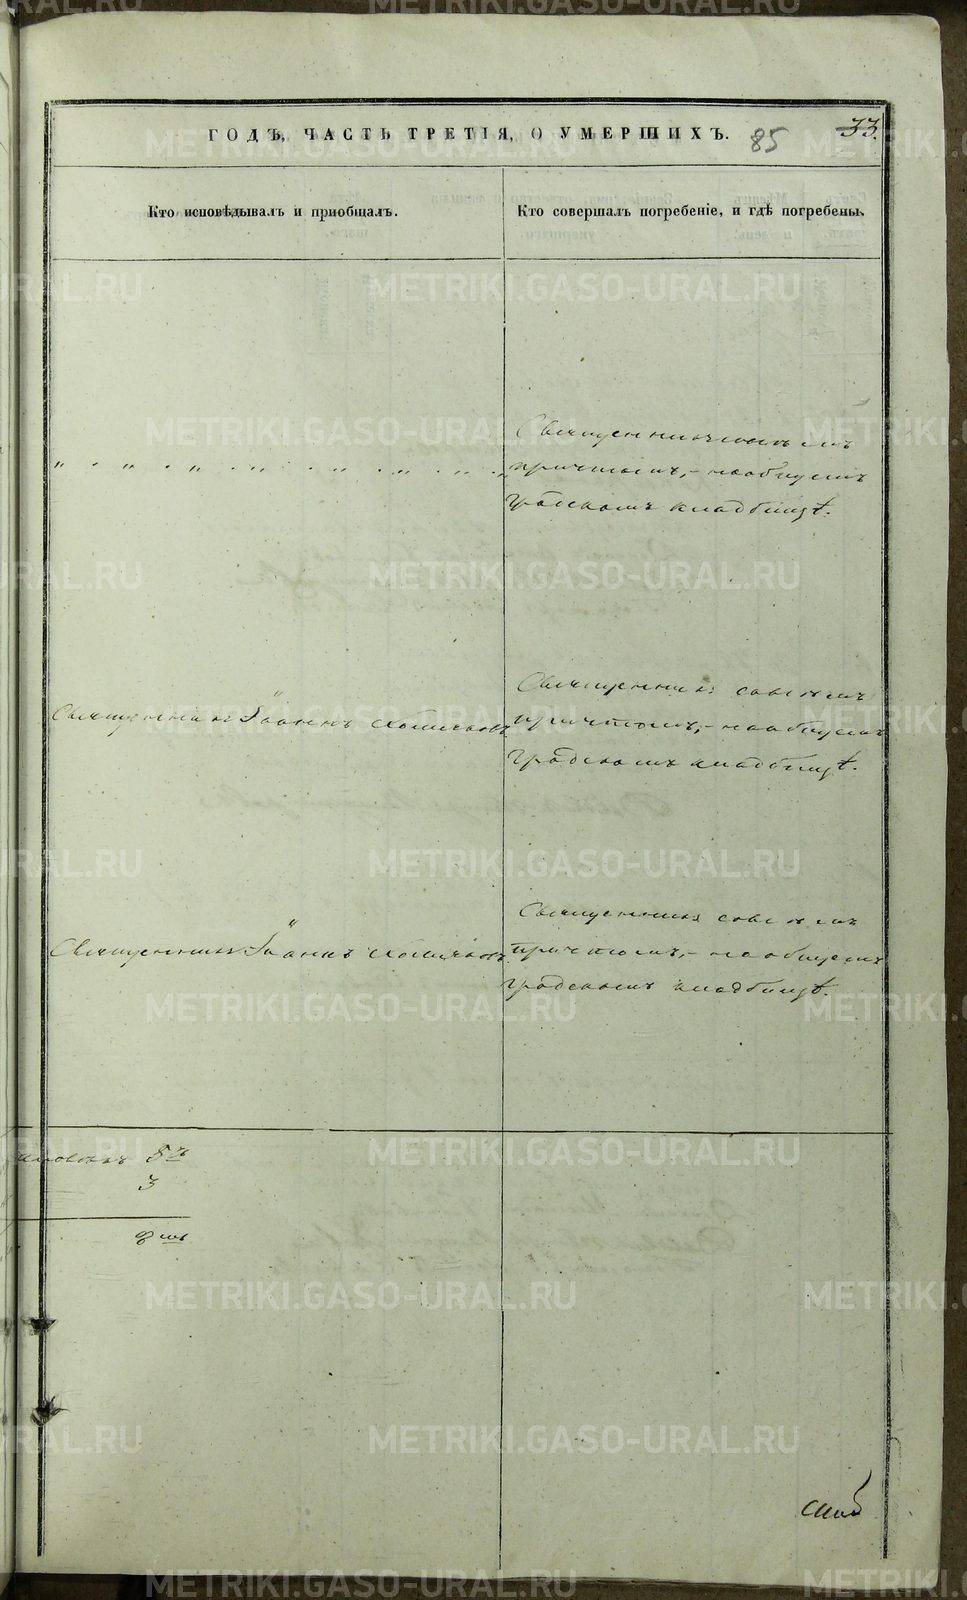 ГОДЪ, ЧАСТЬ ТРЕТІЯ, О УМЕРШИХЪ.
85
33.
Кто исповѣдывалъ и пріобщалъ.
Кто совершалъ погребеніе, и гдѣ погребены.
Священникъ
причтомъ, - на общемъ
градскомъ кладбищѣ.
Священникъ Іоаннъ
Священникъ совсѣмъ
причтомъ, - на общемъ
градскомъ кладбищѣ.
Священникъ Іоаннъ
Священникъ совсѣмъ
причтомъ, - на общемъ
градскомъ кладбищѣ.
5
3
8
METRIKI.GASO-URAL.RU